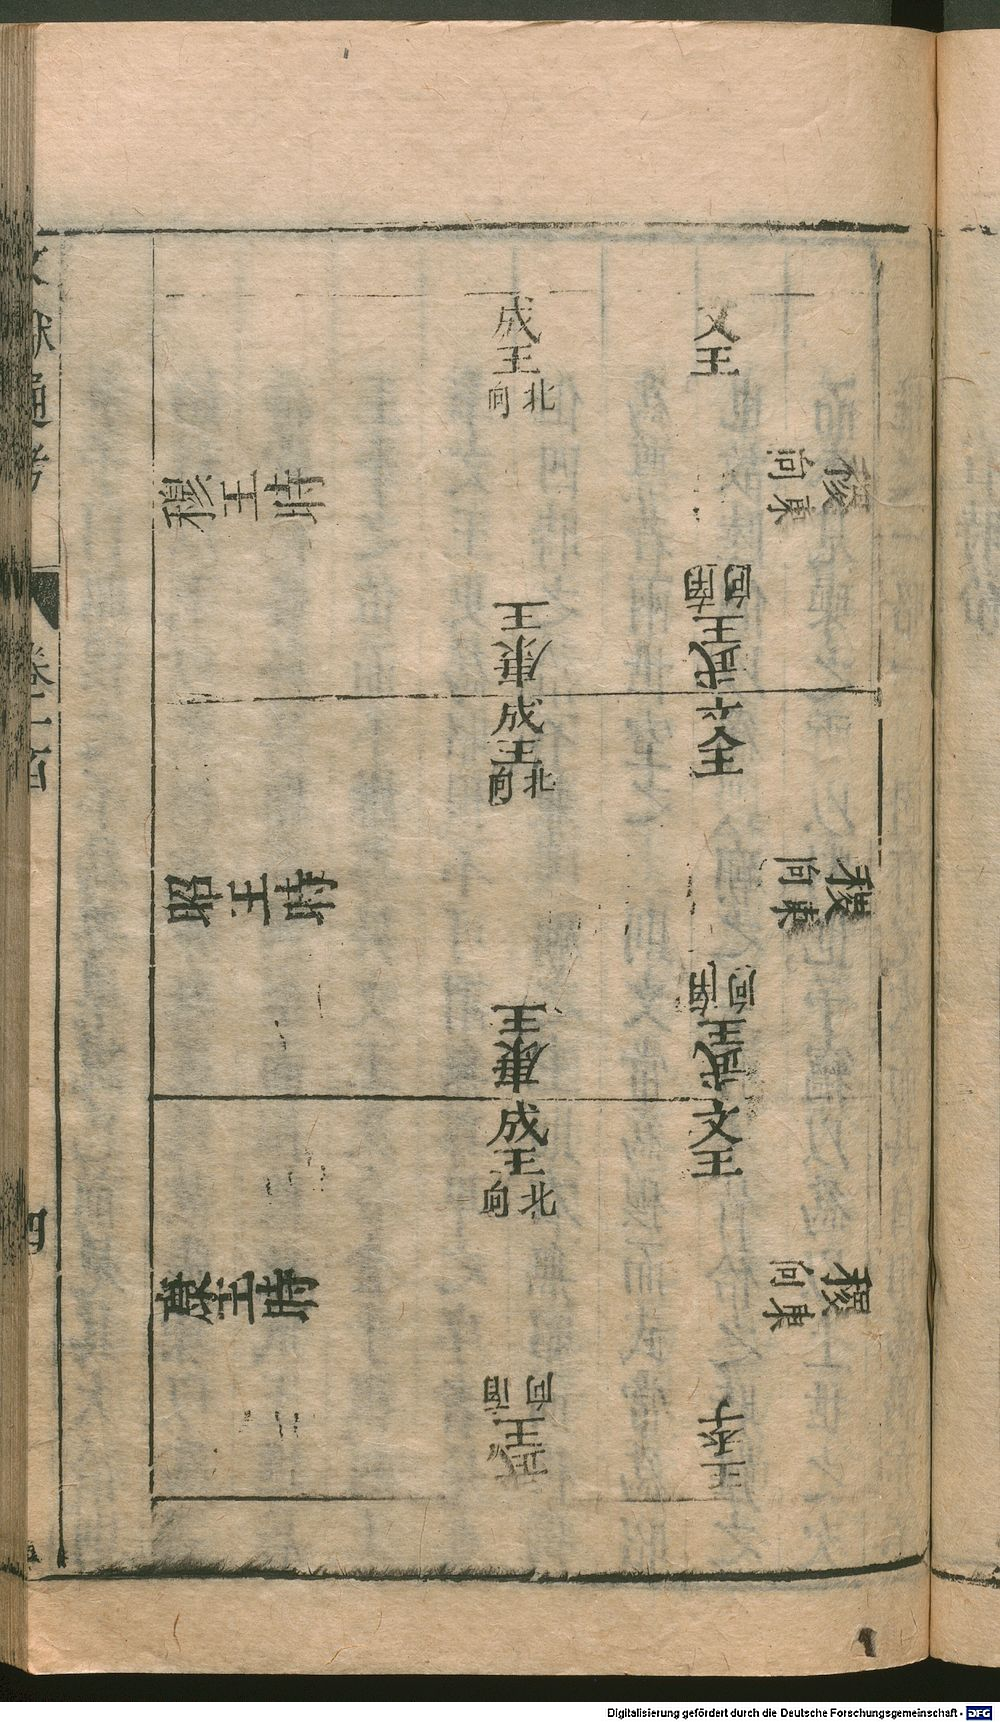 文王
稷東向
武王南向
成王北向
康王
穆王時
文王
稷東向
武王南向
成王北向
康王
昭王時
文王
稷東向
王季
成王北向
武王南向
康王時
文獻通考
四
Digitalisierung gefördert durch die Deutsche Forschungsgemeinschaft - DFG